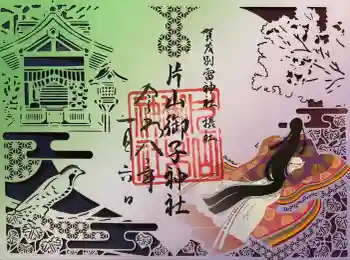 賀茂別雷神社 摂社
片山御子神社
令和八年
一月六日